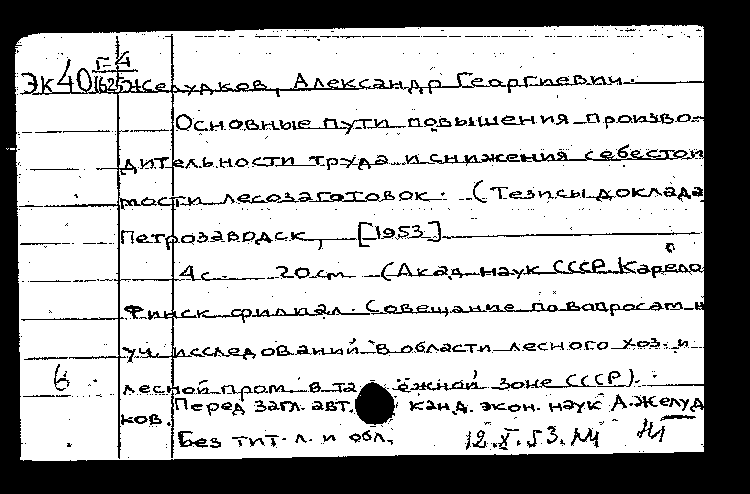 Г-4
Эк40 1625 Желудков, Александр Георгиевич.
Основные пути повышения произво-
дительности труда и снижения себестои
мости лесозаготовок. (Тезисы доклада
Петрозаводск, [1953]
4с. 20см (Акад. наук СССР. Карело
Финск. филиал. Совещание по вопросам н
уч. исследований в области лесного хоз. и
6 лесной пром. в таёжной зоне СССР).
Перед загл. авт. канд. экон. наук А.Желуд
ков.
Без тит. л. и обл. 12.X.53.